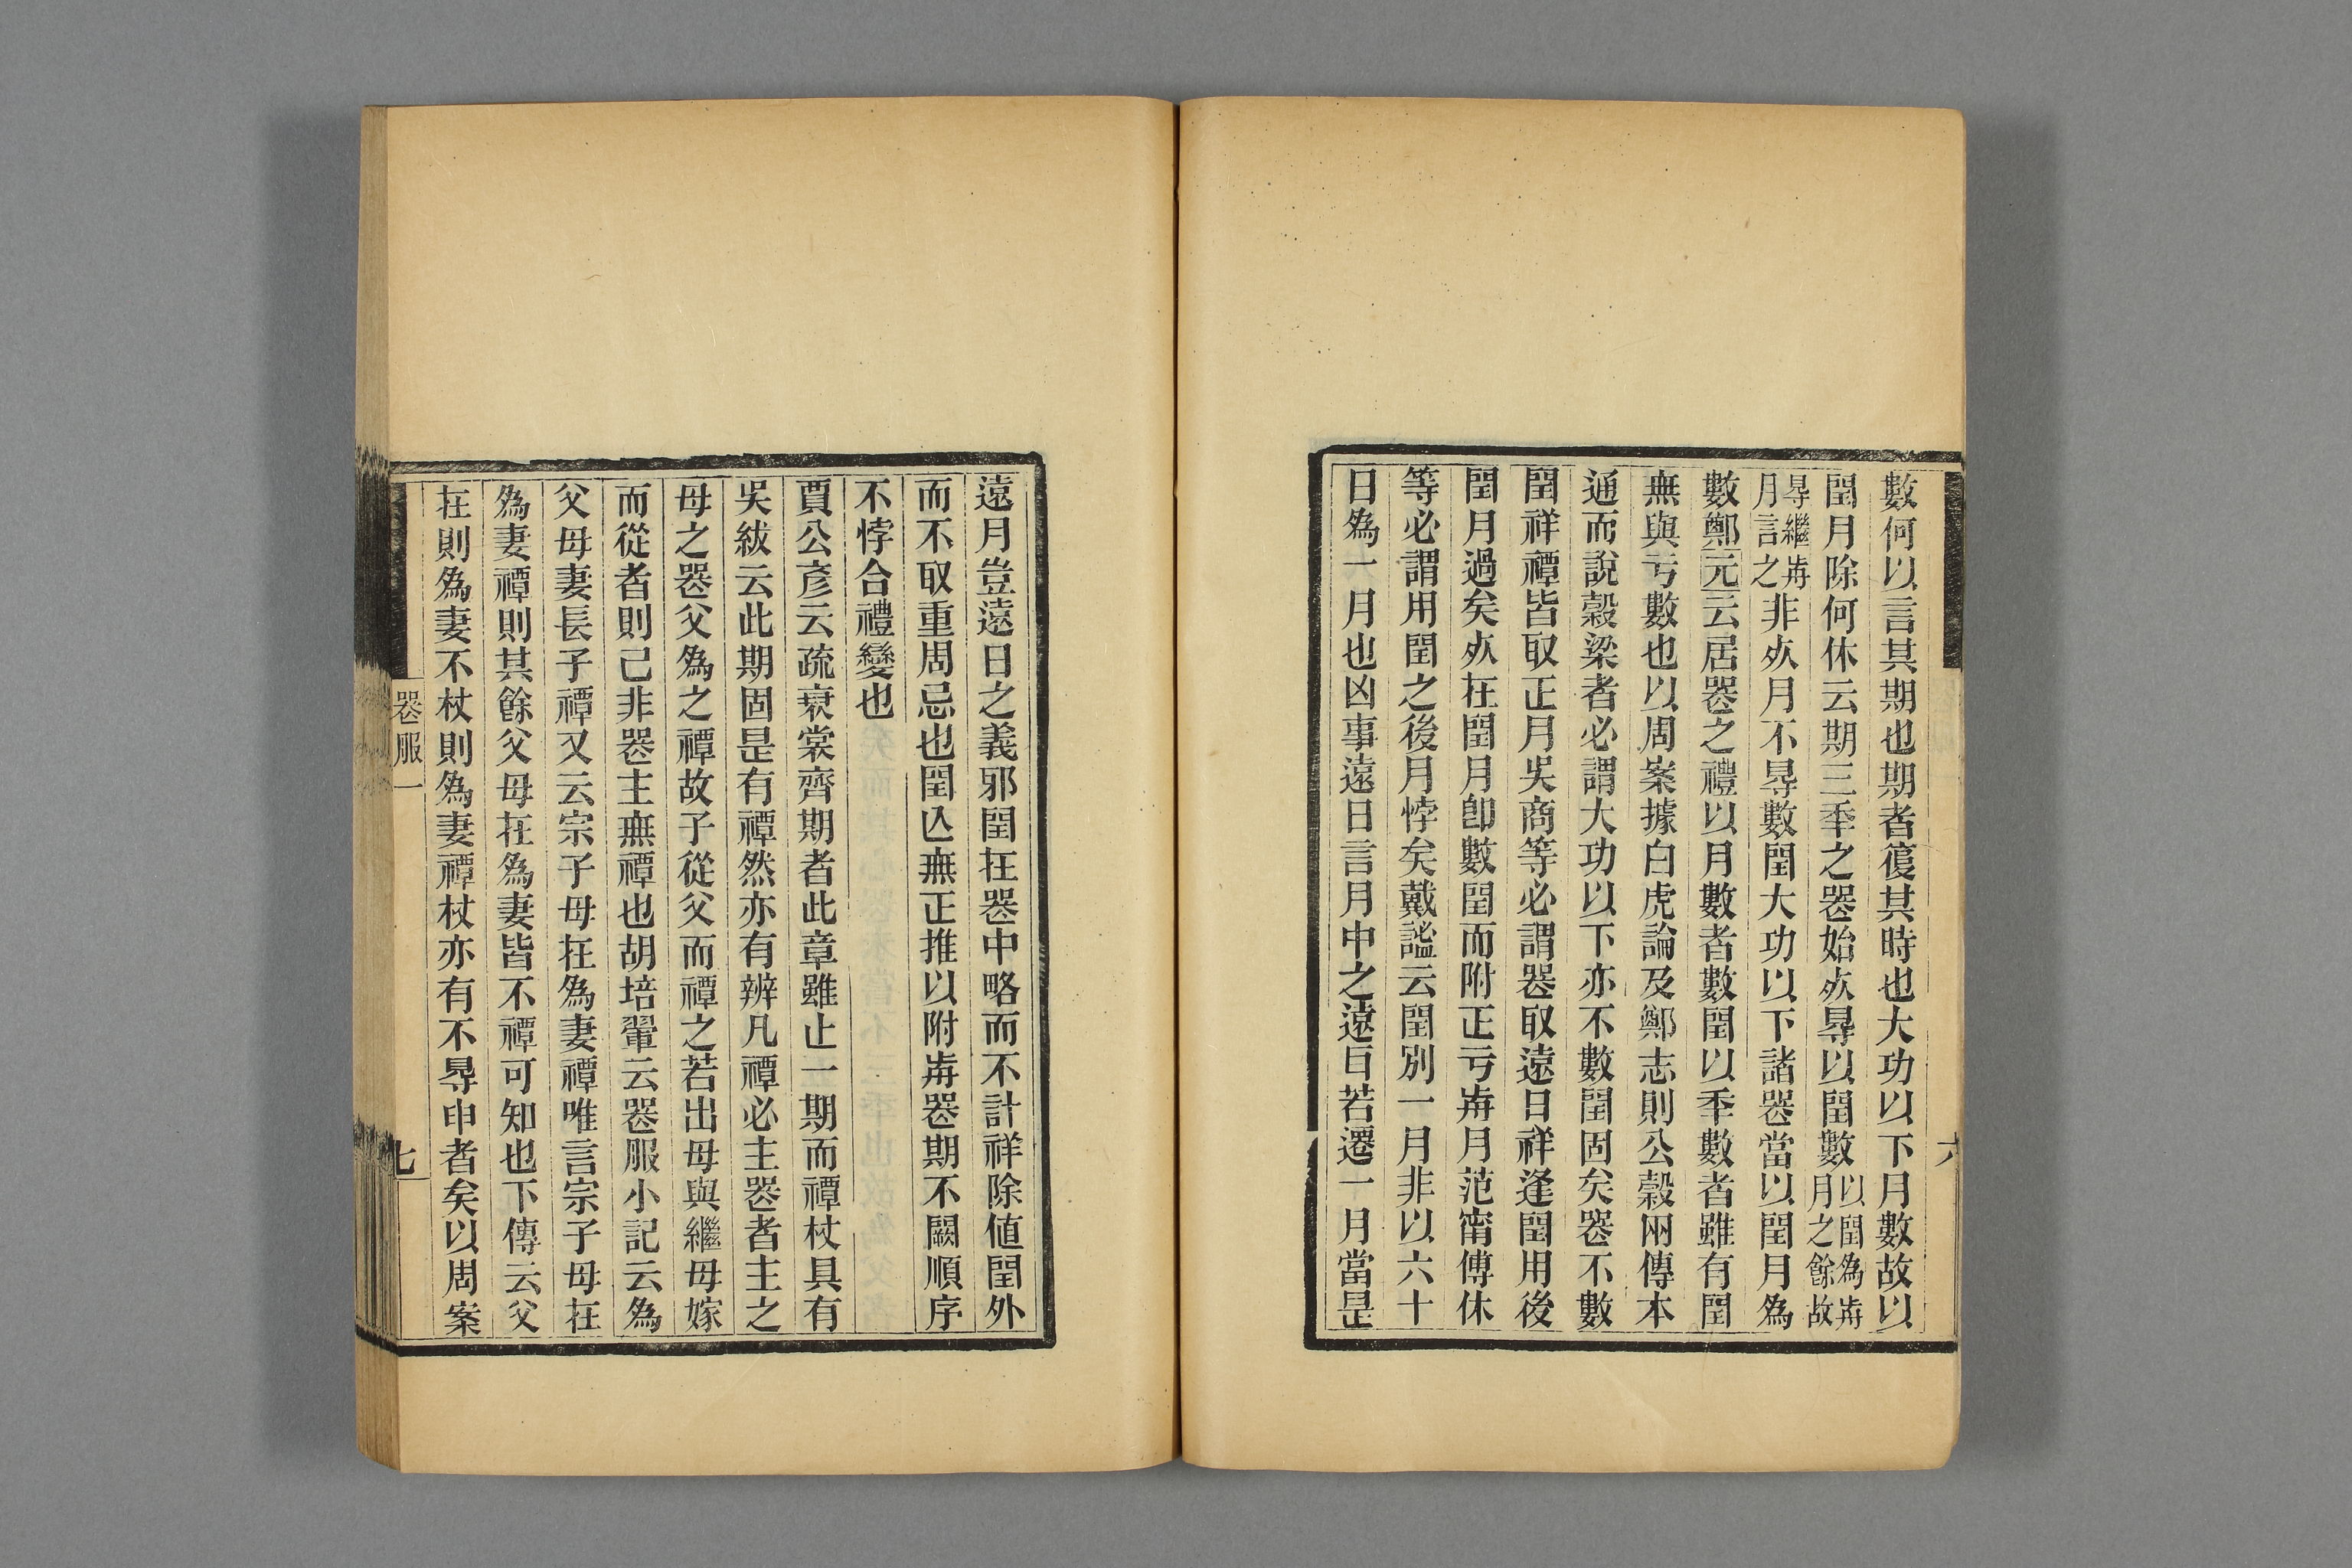 數何以言其期也期者復其時也大功以下月數故以
閏月除何休云期三秊之器始𣦸㝵以閏數以閏為歬月之餘故
㝵繼歬月言之非𣦸月不㝵數閏大功以下諸器當以閏月為
數鄭元云居器之禮以月數者數閏以秊數者雖有閏
無與亏數也以周案據白虎論及鄭志則公穀兩傳本
通而說穀梁者必謂大功以下亦不數閏固矣器不數
閏祥禫皆取正月吳商等必謂器取遠日祥逢閏用後
閏月過矣𣦸在閏月卽數閏而附正亏歬月范甯傅休
等必謂用閏之後月悖矣戴謐云閏別一月非以六十
日為一月也凶事遠日言月中之遠日若遷一月當昰
六
遠月豈遠日之義邪閏在器中略而不計祥除値閏外
而不取重周忌也閏亾無正推以附歬器期不闕順序
不悖合禮變也
賈公彥云疏衰裳齊期者此章雖止一期而禫杖具有
吳紱云此期固昰有禫然亦有辨凡禫必主器者主之
母之器父為之禫故子從父而禫之若出母與繼母嫁
而從者則己非器主無禫也胡培翬云器服小記云為
父母妻長子禫又云宗子母在為妻禫唯言宗子母在
為妻禫則其餘父母在為妻皆不禫可知也下傳云父
在則為妻不杖則為妻禫杖亦有不㝵申者矣以周案
器服一
七